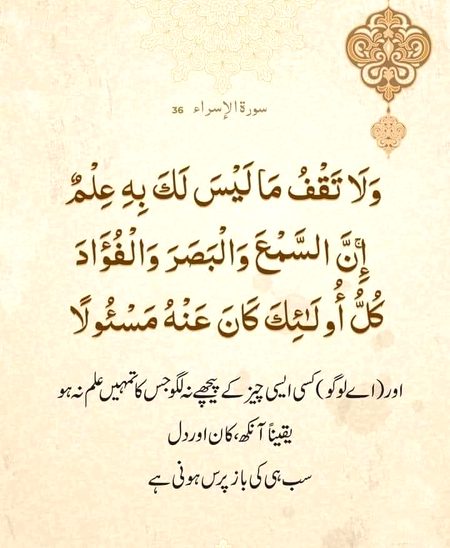 سورة الإسراء 36
وَلَا تَقْفُ مَا لَيْسَ لَكَ بِهِ عِلْمٌ
إِنَّ السَّمْعَ وَالْبَصَرَ وَالْفُؤَادَ
كُلُّ أُولَٰئِكَ كَانَ عَنْهُ مَسْئُولًا
اور(اے لوگو) کسی ایسی چیز کے پیچھے نہ لگو جس کا تمہیں علم نہ ہو
یقیناً آنکھ، کان اور دل
سب ہی کی باز پرس ہونی ہے